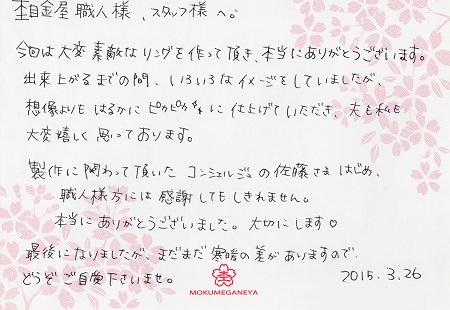 杢目金屋 職人様、スタッフ様へ。
今回は大変素敵なリングを作って頂き、本当にありがとうございます。
出来上がるまでの間、いろいろなイメージをしていましたが、
想像よりもはるかにピカピカに仕上げていただき、夫も私も
大変嬉しく思っております。
製作に関わって頂いたコンシェルジュの佐藤さまはじめ、
職人様方には感謝してもしきれません。
本当にありがとうございました。大切にします♡
最後になりましたが、まだまだ寒暖の差がありますので、
どうぞご自愛下さいませ。
MOKUMEGANEYA
2015.3.26